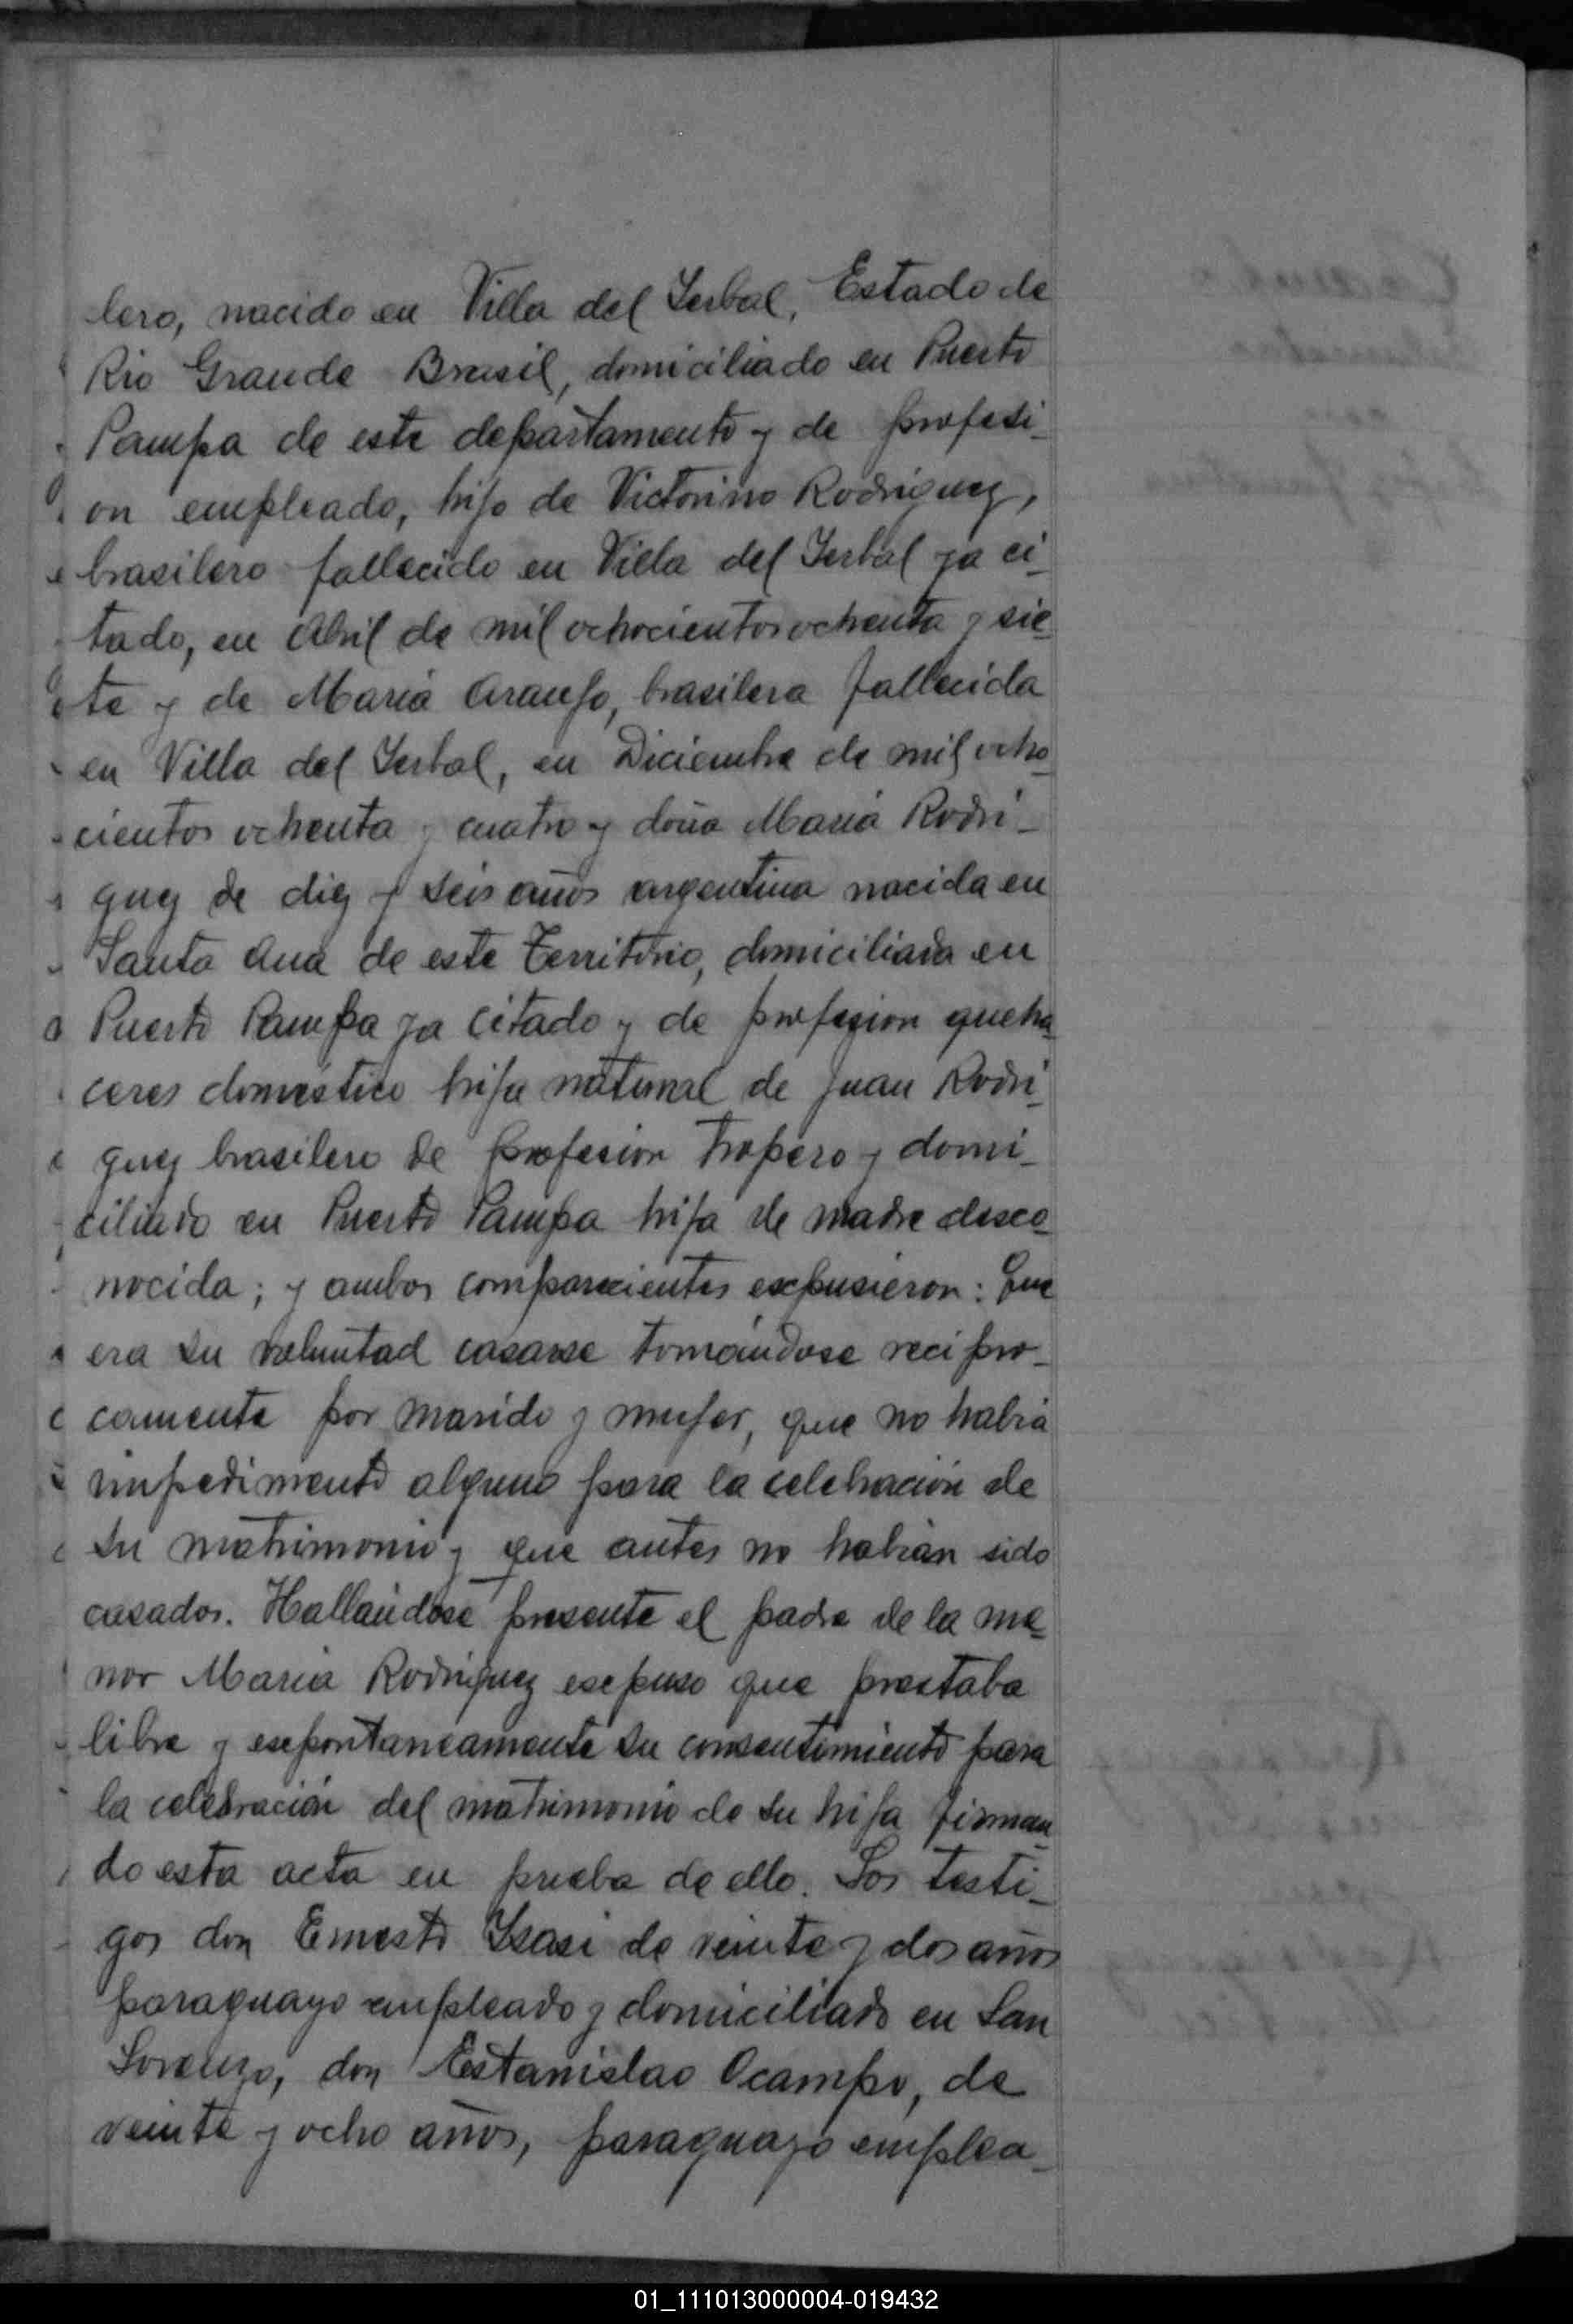 lero, nacido en Villa del Yerbal, Estado de
Rio Grande Brasil, domiciliado en Puerto
Pampa de este departamento y de profesi-
on empleado, hijo de Victorino Rodriguez,
brasilero fallecido en Villa del Yerbal ya ci-
tado, en Abril de mil ochocientos ochenta y sie-
te y de Maria Araujo, brasilera fallecida
en Villa del Yerbal, en Diciembre de mil ocho-
cientos ochenta y cuatro y doña Maria Rodri-
guez de diez y seis años argentina nacida en
Santa Ana de este Territorio, domiciliada en
Puerto Pampa ya citado y de profesion queha-
ceres doméstico hija natural de Juan Rodri-
guez brasilero de profesion tropero y domi-
ciliado en Puerto Pampa hija de madre desco-
nocida; y ambos comparecientes expusieron: Que
era su voluntad casarse tomándose recipro-
camente por marido y mujer, que no habia
impedimento alguno para la celebración de
su matrimonio y que antes no habian sido
casados. Hallándose presente el padre de la me-
nor Maria Rodriguez expuso que prestaba
libre y expontaneamente su consentimiento para
la celebración del matrimonio de su hija firman-
do esta acta en prueba de ello. Los testi-
gos don Ernesto Ysasi de veinte y dos años
paraguayo empleado y domiciliado en San
Lorenzo, don Estanislao Ocampo, de
veinte y ocho años, paraguayo emplea-
01_111013000004-019432